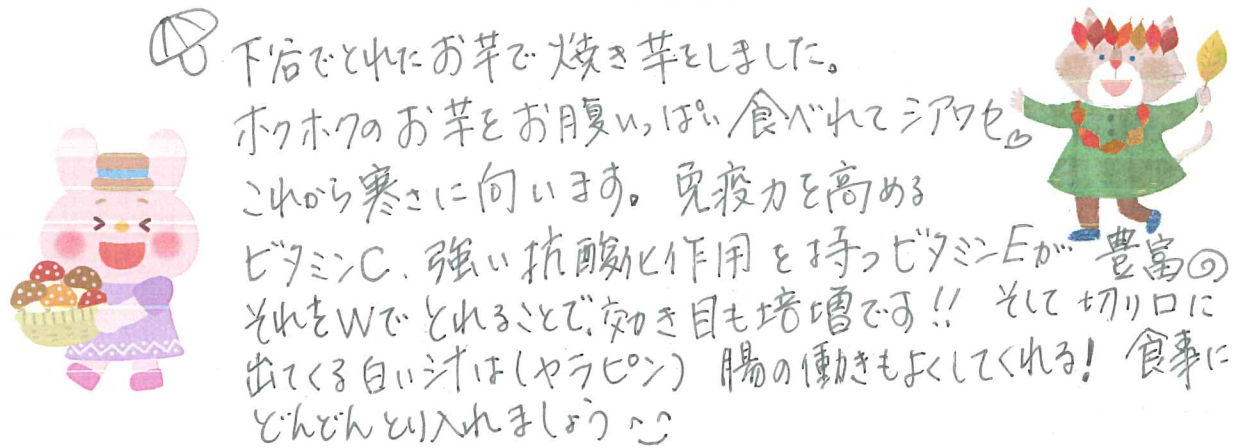 下谷でとれたお芋で焼き芋をしました。
ホクホクのお芋をお腹いっぱい食べれてシアワセ♡
これから寒さに向います。免疫力を高める
ビタミンC、強い抗酸化作用を持つビタミンEが豊富
それをWでとれることで、効き目も培増です!! そして切り口に
出てくる白い汁は(ヤラピン)腸の働きもよくしてくれる! 食事に
どんどんとり入れましょう